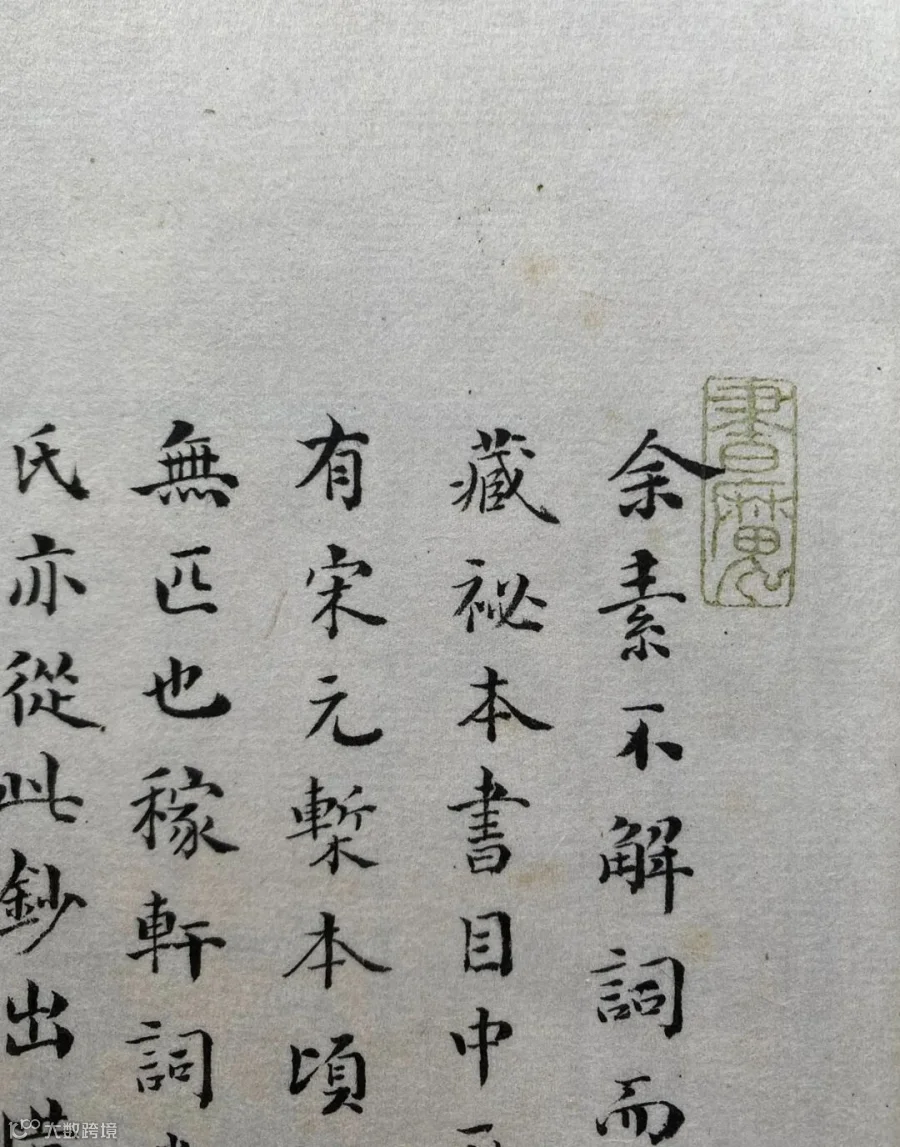 書魔
余素不解詞而
藏祕本書目中
有宋元槧本頃
無匹也稼軒詞
氏亦從此鈔出
大数跨境